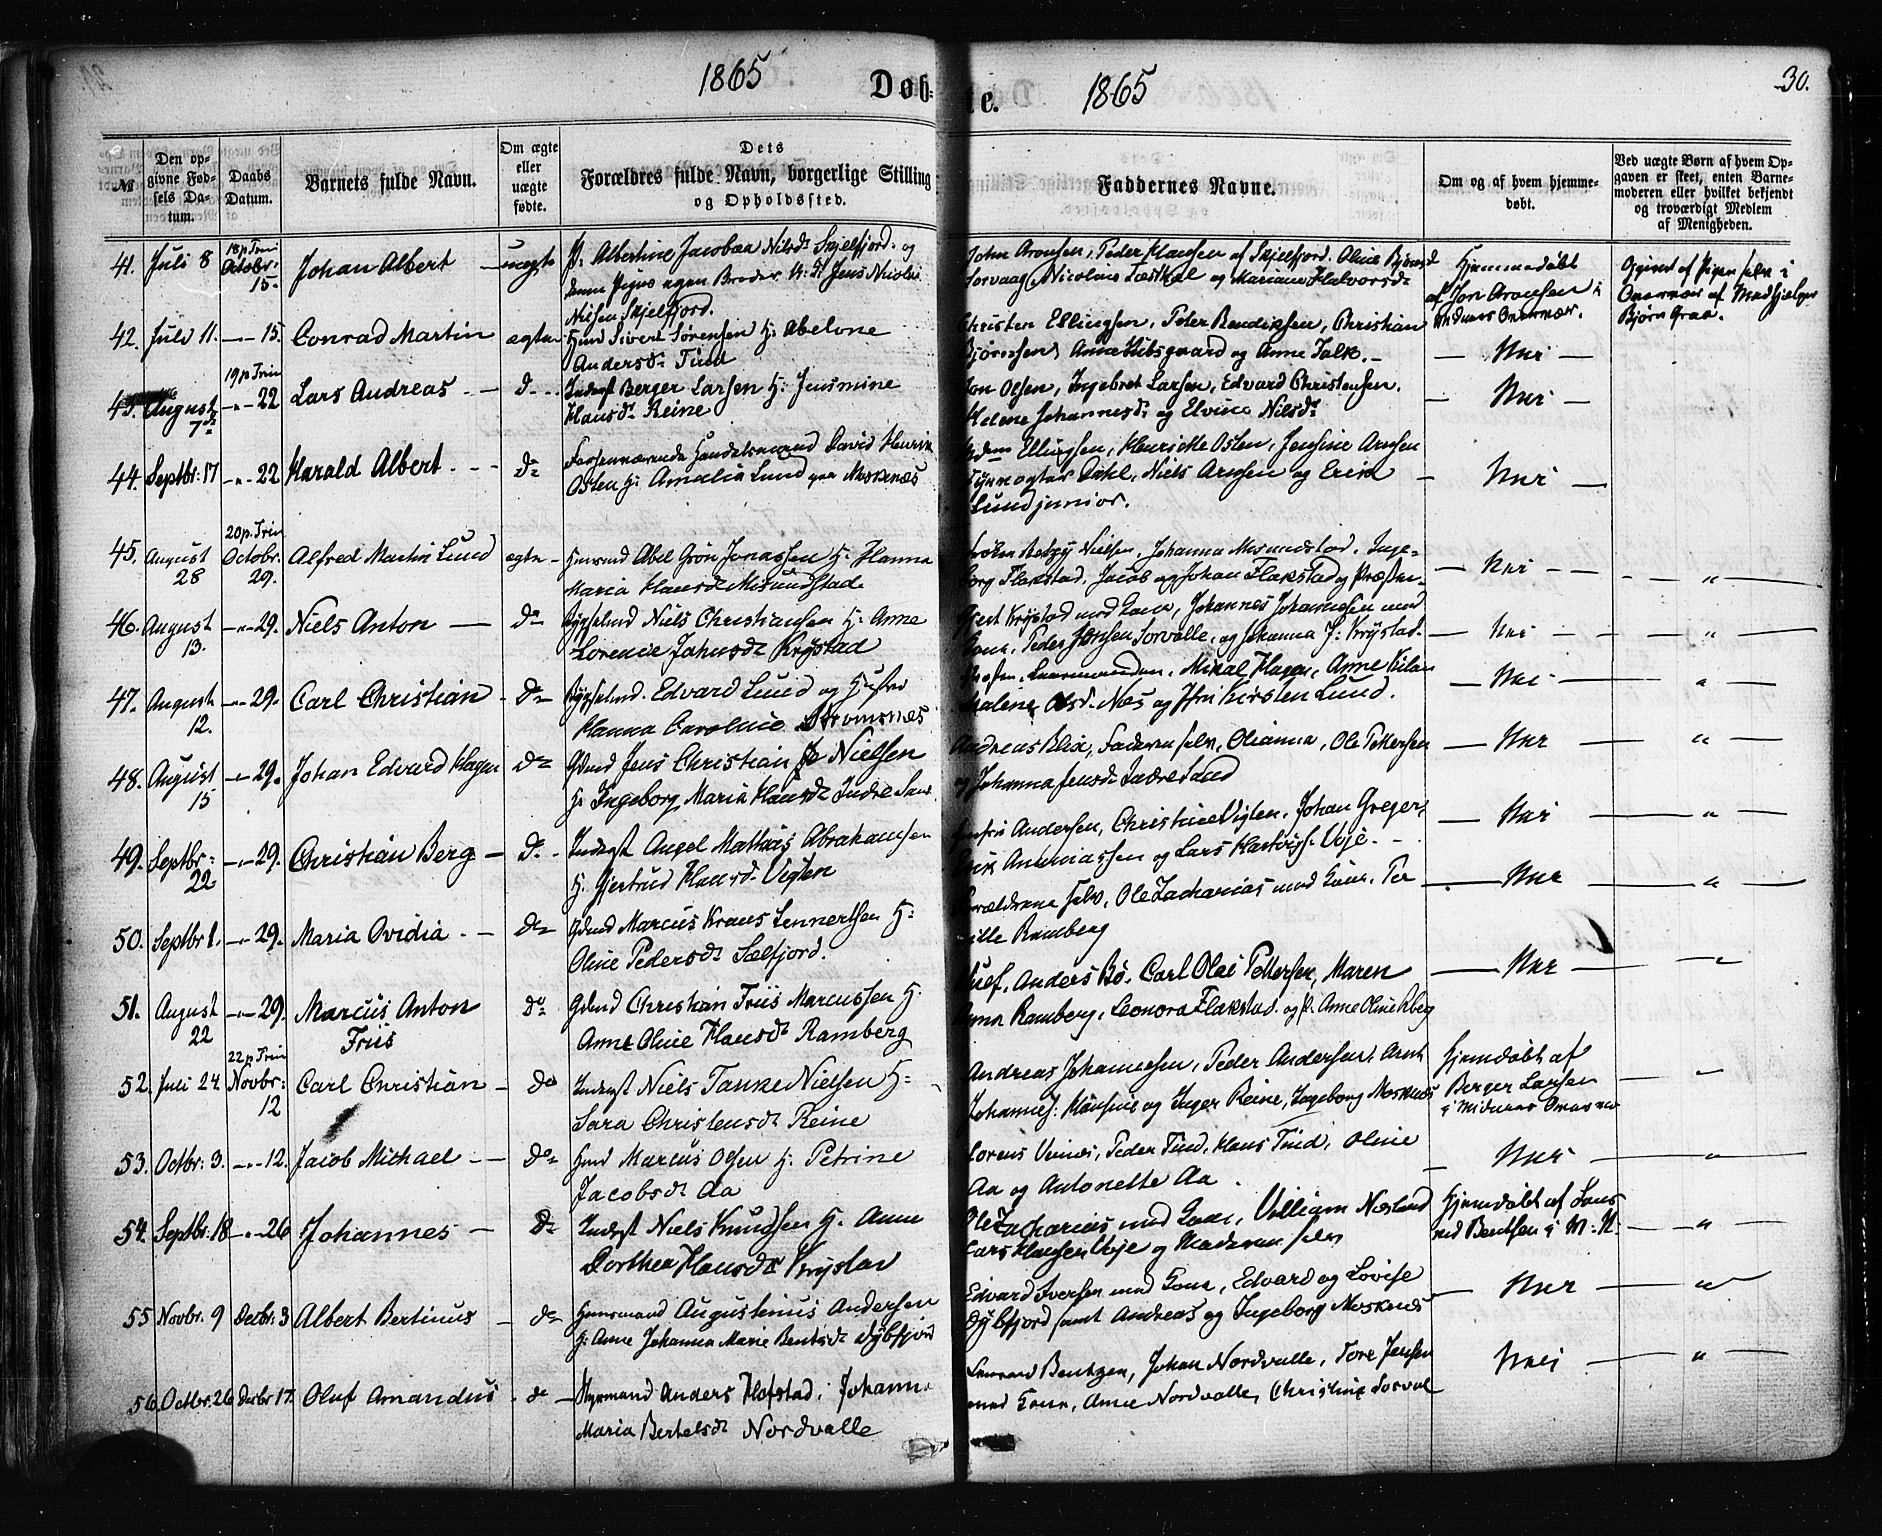 1865
Døb-
te.
1865
30.
№
Den op-
givne Fød-
sels Da-
tum.
Daabs
Datum.
Barnets fulde Navn.
Om ægte
eller
uægte
fødte.
Dets
Forældres fulde Navn, borgerlige Stilling
og Opholdssted.
Faddernes Navne.
Om og af hvem hjemme-
døbt.
Ved uægte Børn af hvem Op-
gaven er skeet, enten Barne-
moderen eller hvilket bekjendt
og troværdigt Medlem
af Menigheden.
41. Juli 8 18 p Trin Octobr. 15. Johan Albert uægte P: Albertine Jacobæa Nilsd. Skjelfjord og
denne Piges egen Broder Jens Nicolai
Nilsen Skjelfjord.
John Aronsen, Peder Hansen af Skjelfjord. Oline
Sorvaag, Nicolaus og Mariane Halvorsd.
Hjemmedøbt
af Jon Aronsen i
Opgivet af Pigen selv i
Bjørn Graa.
42. Juli 11. -"- 15. Conrad Martin ægte Hmd Sivert Sørensen H: Abelone
Andersd. Tind
Christen Ellingsen, Peter Bendiksen, Christian
Bjørnsen, Anne og Anne Falk. Nei
43. August 7de 19 p Trin -"- 22 Lars Andreas D. Inderst Berger Larsen H: Jensmine
Hansd. Reine
Jon Olsen, Ingebret Larsen, Edvard Christensen.
Helene Johannesd. og Elvine Nilsd. Nei
44. Septbr. 17 -"- 22 Harald Albert Do Handelsmand David Henrik
Osten H: Amalia Lund paa Moskenæs
Ellingsen, Henrikke Osten, Jensine Arnsen
Dahl, Niels Arnsen og Erik
Lund junior. Nei
45. August 28 20 p. Trin Octobr. 29. Alfred Martin Lund ægte Abel Grøn Jonassen H: Hanna
Maria Hansd. Misundstad
Nielsen, Johanna Mesundstad, Inge-
borg Flakstad, Jacob og Johan Flakstad og Præsten Nei "
46. August 13. -"- 29. Niels Anton Do Niels Christiansen H: Anne
Lorence Johnsd. Krystad
Krystad med Kone, Johannes Johannesen med
Kone, Peder Jensen Sorvalle, og Johanna J: Krystad. Nei "
47. August 12. -"- 29. Carl Christian Do Edvard Lund og Hustru
Hanna Caroline Strømsnæs
Lensmanden, Mikal Hagen, Anne
Malene Olsd. Næs og Kirsten Lund. Nei "
48. August 15 -"- 29. Johan Edvard Hagen Do Gdmd Jens Christian Nielsen
H: Ingeborg Maria Hansd. Indre Sand
Andreas Blix, Faderen selv, Olianna, Ole Pettersen
og Johanna Jensd. Nei "
49. Septbr: 22 -"- 29. Christian Berg D. Inderst Angel Mathias Abrahamsen
H: Gjertrud Hansd. Vigten
Andersen, Christine Vigten, Johan Greger,
og Lars Voje. Nei "
50. Septbr 1. -"- 29. Maria Ovidia Do Gdmd Marcus Kraus Lennertsen H:
Oline Pedersd. Sælfjord.
Forældrene selv, Ole Zacharias med Kone,
Ramberg Nei "
51. August 22 -"- 29. Marcus Anton
Friis Do Gdmd Christian Friis Marcussen H:
Anne Oline Hansd. Ramberg
Anders Bø. Carl Olai Pettersen, Maren
Anna Ramberg, Leonora Flakstad. og P. Anne Oline Nei "
52. Juli 24. 22 p Trin Novbr: 12 Carl Christian Do Inderst Niels Tanke Nielsen H:
Sara Christensd. Reine
Andreas Johannesen, Peder Andersen, Arnt
Johannes: Hansine og Inger Reine, Ingeborg Moskenæs
Hjemdøbt af
Berger Larsen "
53. Octbr: 3. -"- 12. Jacob Michael Do Hmd Marcus Olsen H: Petrine
Jacobsd. Aa
Lorens, Peder Tind, Hans Tind, Oline
Aa og Antonette Aa. Nei "
54. Septbr: 18 -"- 26 Johannes Do Inderst Niels Knudsen H: Anne
Dorthea Hansd. Krystad
Ole Zacharias med Kone, Villiam Næsland
Lars Hansen Voje og Moderen selv
Hjemdøbt af
Bentsen i M: N: "
55 Novbr. 9 Decbr: 3 Albert Bertinus Do Husmand Augustinus Andersen
H: Anne Johanna Marie Bentsd. Dybfjord
Edvard Iversen med Kone, Edvard og Lovise
Dybfjord samt Andreas og Ingeborg Moskenæs Nei "
56. Octbr. 26 Decbr 17. Oluf Amandus do Anders Hofstad, Johanna
Maria Bertelsd. Nordvalle
Bentzen, Johan Nordvalle, Tore Jensen
med Kone, Anne Nordvalle, Christine Nei "